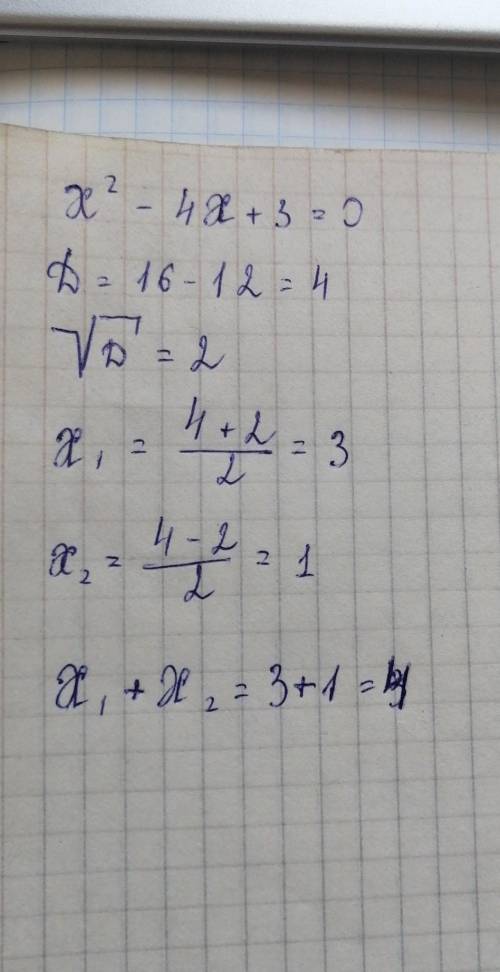 x² - 4x + 3 = 0
D = 16 - 12 = 4
√D = 2
x₁ = (4 + 2)/2 = 3
x₂ = (4 - 2)/2 = 1
x₁ + x₂ = 3 + 1 = 4